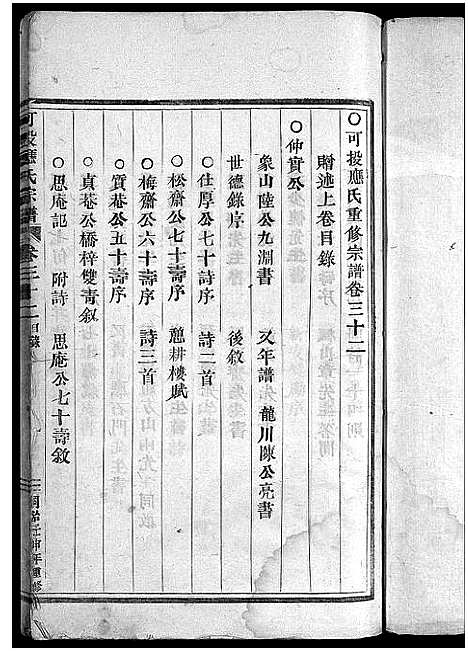 ○可投應氏重修宗譜卷三十二
贈述上卷目錄
○仲實公
象山陸公九淵書　又年譜　龍川陳公亮書
世德錄序　後敘
○仕厚公七十詩序　詩二首
○松齋公七十壽序　憩耕樓賦
○梅齋公六十壽序　詩三首
○質菴公五十壽序
○貞菴公橋梓雙壽敘
○思庵記　附詩　思庵公七十壽敘
可投應氏宗譜　卷三十二　目錄　一　同治壬申年重修